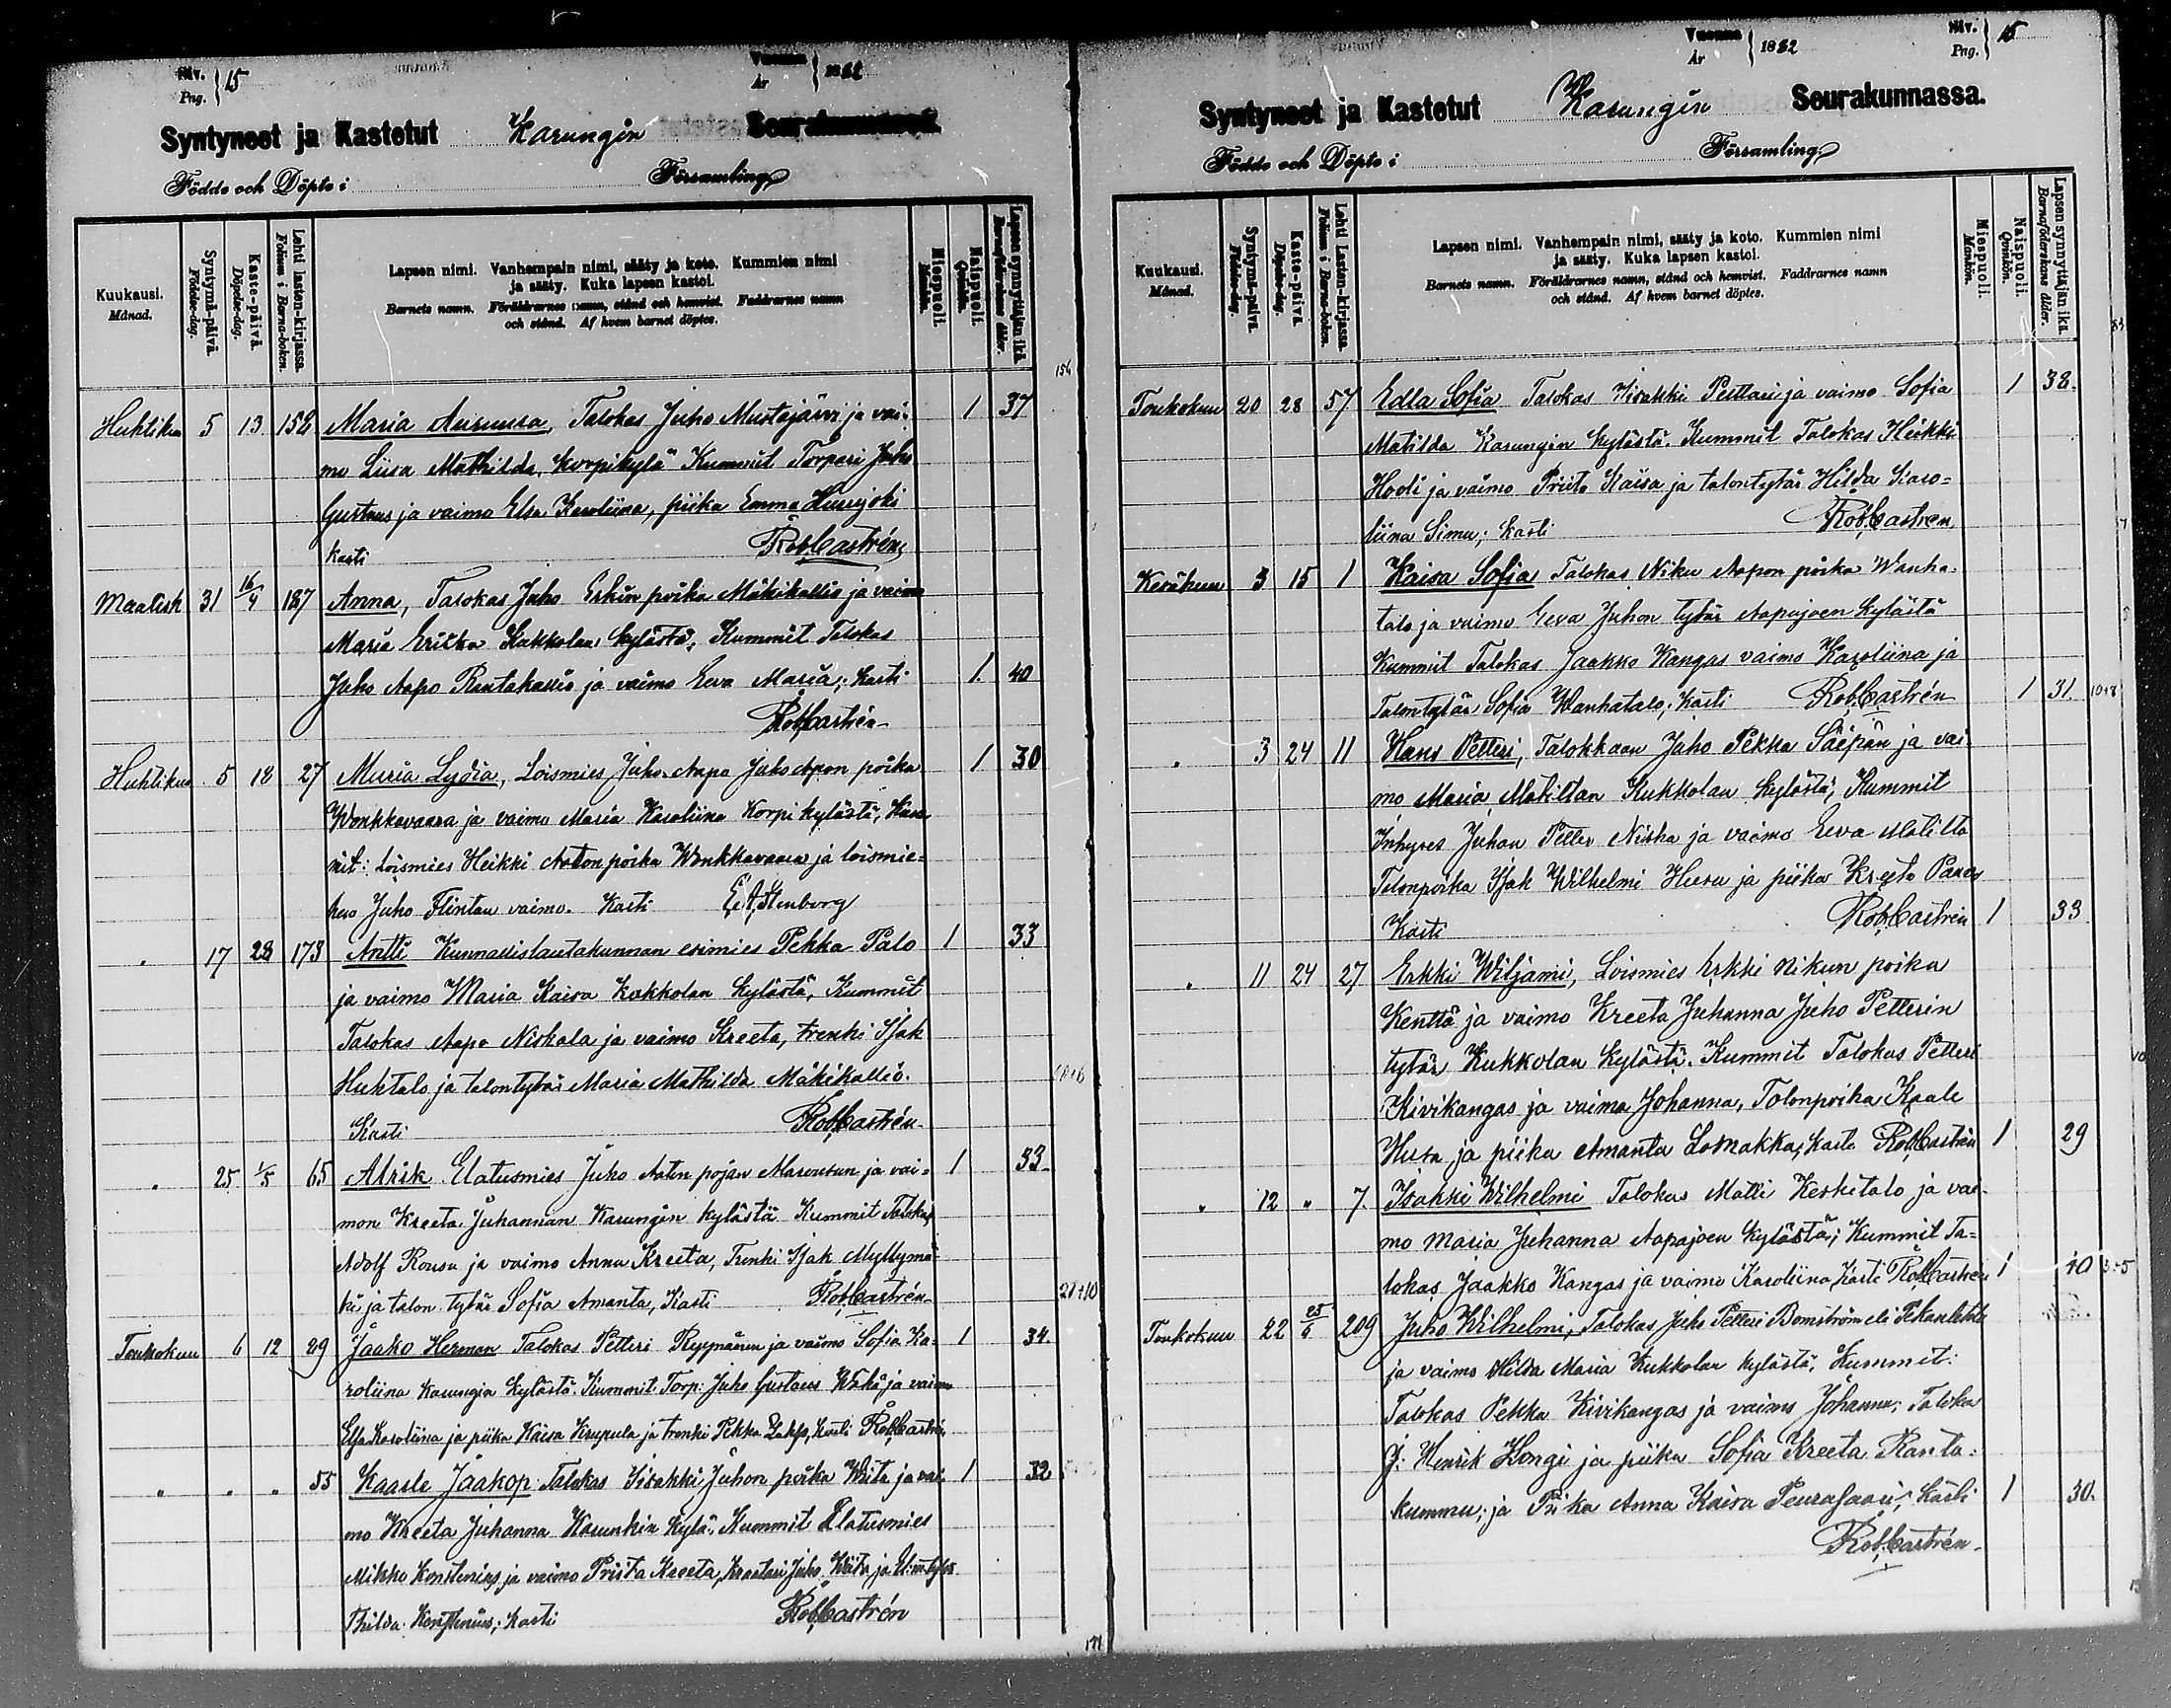 Siv.
Png. } 15
Vuonna
År } 1882
Syntyneet ja Kastetut Karungin Seurakunnassa.
Födde och Döpte i Församling
Kuukausi.
Månad.
Syntymä-päivä.
Födelse-dag.
Kaste-päivä.
Döpelse-dag.
Lehti lasten-kirjassa.
Folium i Barna-boken.
Lapsen nimi. Vanhempain nimi, sääty ja koto. Kummien nimi
ja sääty. Kuka lapsen kastoi.
Barnets namn. Föräldrarnes namn, stånd och hemvist. Faddrarnes namn
och stånd. Af hvem barnet döptes.
Miespuoli.
Mankön.
Naispuoli.
Qvinkön.
Lapsen synnyttäjän ikä.
Barnaföderskans ålder.
Huhtikuu 5 13 152 Maria Auruura, Talokas Juho Mustajärvi ja vai- 1 37
mo Liisa Mathilda, Korpikylä Kummit Torpari Juho
Gustaus ja vaimo Elsa Karoliina, piika Emma
kasti Rob. Castrén
Maalisk 31 16/4 187 Anna, Talokas Juho Erkin poika Mäkikallio ja vaimo
Maria Erika Kukkolan kylästä, Kummit Talokas
Juho Aapo Rautakallio ja vaimo Eeva Maria; Kasti 1. 40
Rob. Castrén
Huhtikuu 5 18 27 Maria Lydia, Loismies Juho Aapo Juho Apon poika 1 30
Wonkkavaara ja vaimo Maria Karoliina Korpikylästä, Kum
mit: Loismies Heikki Anton poika Wonkkavaara ja loismie-
hen Juho Flintan vaimo. Kasti E. A. Stenborg
" 17 28 173 Antti Kunnallislautakunnan esimies Pekka Palo 1 33
ja vaimo Maria Kaisa Kukkolan kylästä, Kummit
Talokas Aapo Niskala ja vaimo Kreeta, trenki Isak
Huhtalo ja talontytär Maria Mathilda Mäkikallio.
Kasti Rob. Castrén
" 25 1/5 65 Alrik Elatusmies Juho Antin pojan ja vai- 1 33
mon Kreeta Juhannan Karungin kylästä Kummit Talokas
Adolf Rousu ja vaimo Anna Kreeta, Trenki Isak Myllymä
ki ja talon tytär Sofia Amanta, Kasti Rob. Castrén
Toukokuu 6 12 29 Jaako Herman Talokas Petteri Reppänen ja vaimo Sofia Ka- 1 34.
roliina Karungin kylästä. Kummit Torp. Juho Gustaus ja vaimo
Elsa Karoliina ja piika Kaisa Krupula ja trenki Pekka, kasti Rob. Castrén
" " " 55 Kaarle Jaakop Talokas Iisakki Juhon poika Wiita ja vai 1 32
mo Kreeta Juhanna Karunkin kylä. Kummit Elatusmies
Mikko Konstenius ja vaimo Priita Kreeta, Juho Wiita ja
Thilda Konstenius; kasti Rob. Castrén
154
28+10
171
Siv.
Png. } 15
Vuonna
År } 1882
Syntyneet ja Kastetut Karungin Seurakunnassa.
Födde och Döpte i Församling
Kuukausi.
Månad.
Syntymä-päivä.
Födelse-dag.
Kaste-päivä.
Döpelse-dag.
Lehti Lasten-kirjassa.
Folium i Barna-boken.
Lapsen nimi. Vanhempain nimi, sääty ja koto. Kummien nimi
ja sääty. Kuka lapsen kastoi.
Barnets namn. Föräldrarnes namn, stånd och hemvist. Faddrarnes namn
och stånd. Af hvem barnet döptes.
Miespuoli.
Mankön.
Naispuoli.
Qvinkön.
Lapsen synnyttäjän ikä.
Barnaföderskans ålder.
Toukokuu 20 28 57 Edla Sofia Talokas Iisakki Pelttari ja vaimo Sofia 1 38.
Matilda Karungin kylästä. Kummit Talokas Heikki
Hooli ja vaimo Priita Kaisa ja talontytär Hilda Karo-
liina Simu; Kasti Rob. Castrén
Kesäkuu 3 15 1 Kaisa Sofia Talokas Niku Aapon poika Wanha-
talo ja vaimo Eeva Juhon tytär Aapajoen kylästä
Kummit Talokas Jaakko Kangas vaimo Karoliina ja
Talontytär Sofia Wanhatalo; Kasti Rob. Castrén 1 31. 10+8
" 3 24 11 Hans Petteri, Talokkaan Juho Pekka Säipän ja vai
mo Maria Matiltan Kukkolan kylästä, Kummit
Inhyses Juhan Petter Niska ja vaimo Eeva Matilta
Talonpoika Isak Wilhelmi Huru ja piika Kreeta
Kasti Rob. Castrén 1 33
" 11 24 27 Erkki Wiljami, Loismies Erkki Nikun poika
Kenttä ja vaimo Kreeta Juhanna Juho Petterin
tytär Kukkolan kylästä. Kummit Talokas Petteri
Kivikangas ja vaimo Johanna, Talonpoika Kaale
Husa ja piika Amanta Lomakka; kasti Rob. Castrén 1 29
" 12 " 7. Isakki Wilhelmi Talokas Matti Keskitalo ja vai-
mo Maria Juhanna Aapajoen kylästä; Kummit Ta-
lokas Jaakko Kangas ja vaimo Karoliina Kasti Rob. Castrén 1 40 3+5
Toukokuu 22 25/6 209 Juho Wilhelmi, Talokas Juho Petteri Bomström eli
ja vaimo Hilda Maria Kukkolan kylästä, Kummit:
Talokas Pekka Kivikangas ja vaimo Johanna; Taloka
J. Henrik Kongi ja piika Sofia Kreeta Ranta-
kummu; ja Piika Anna Kaisa Peurasaari; Kasti 1 30.
Rob. Castrén